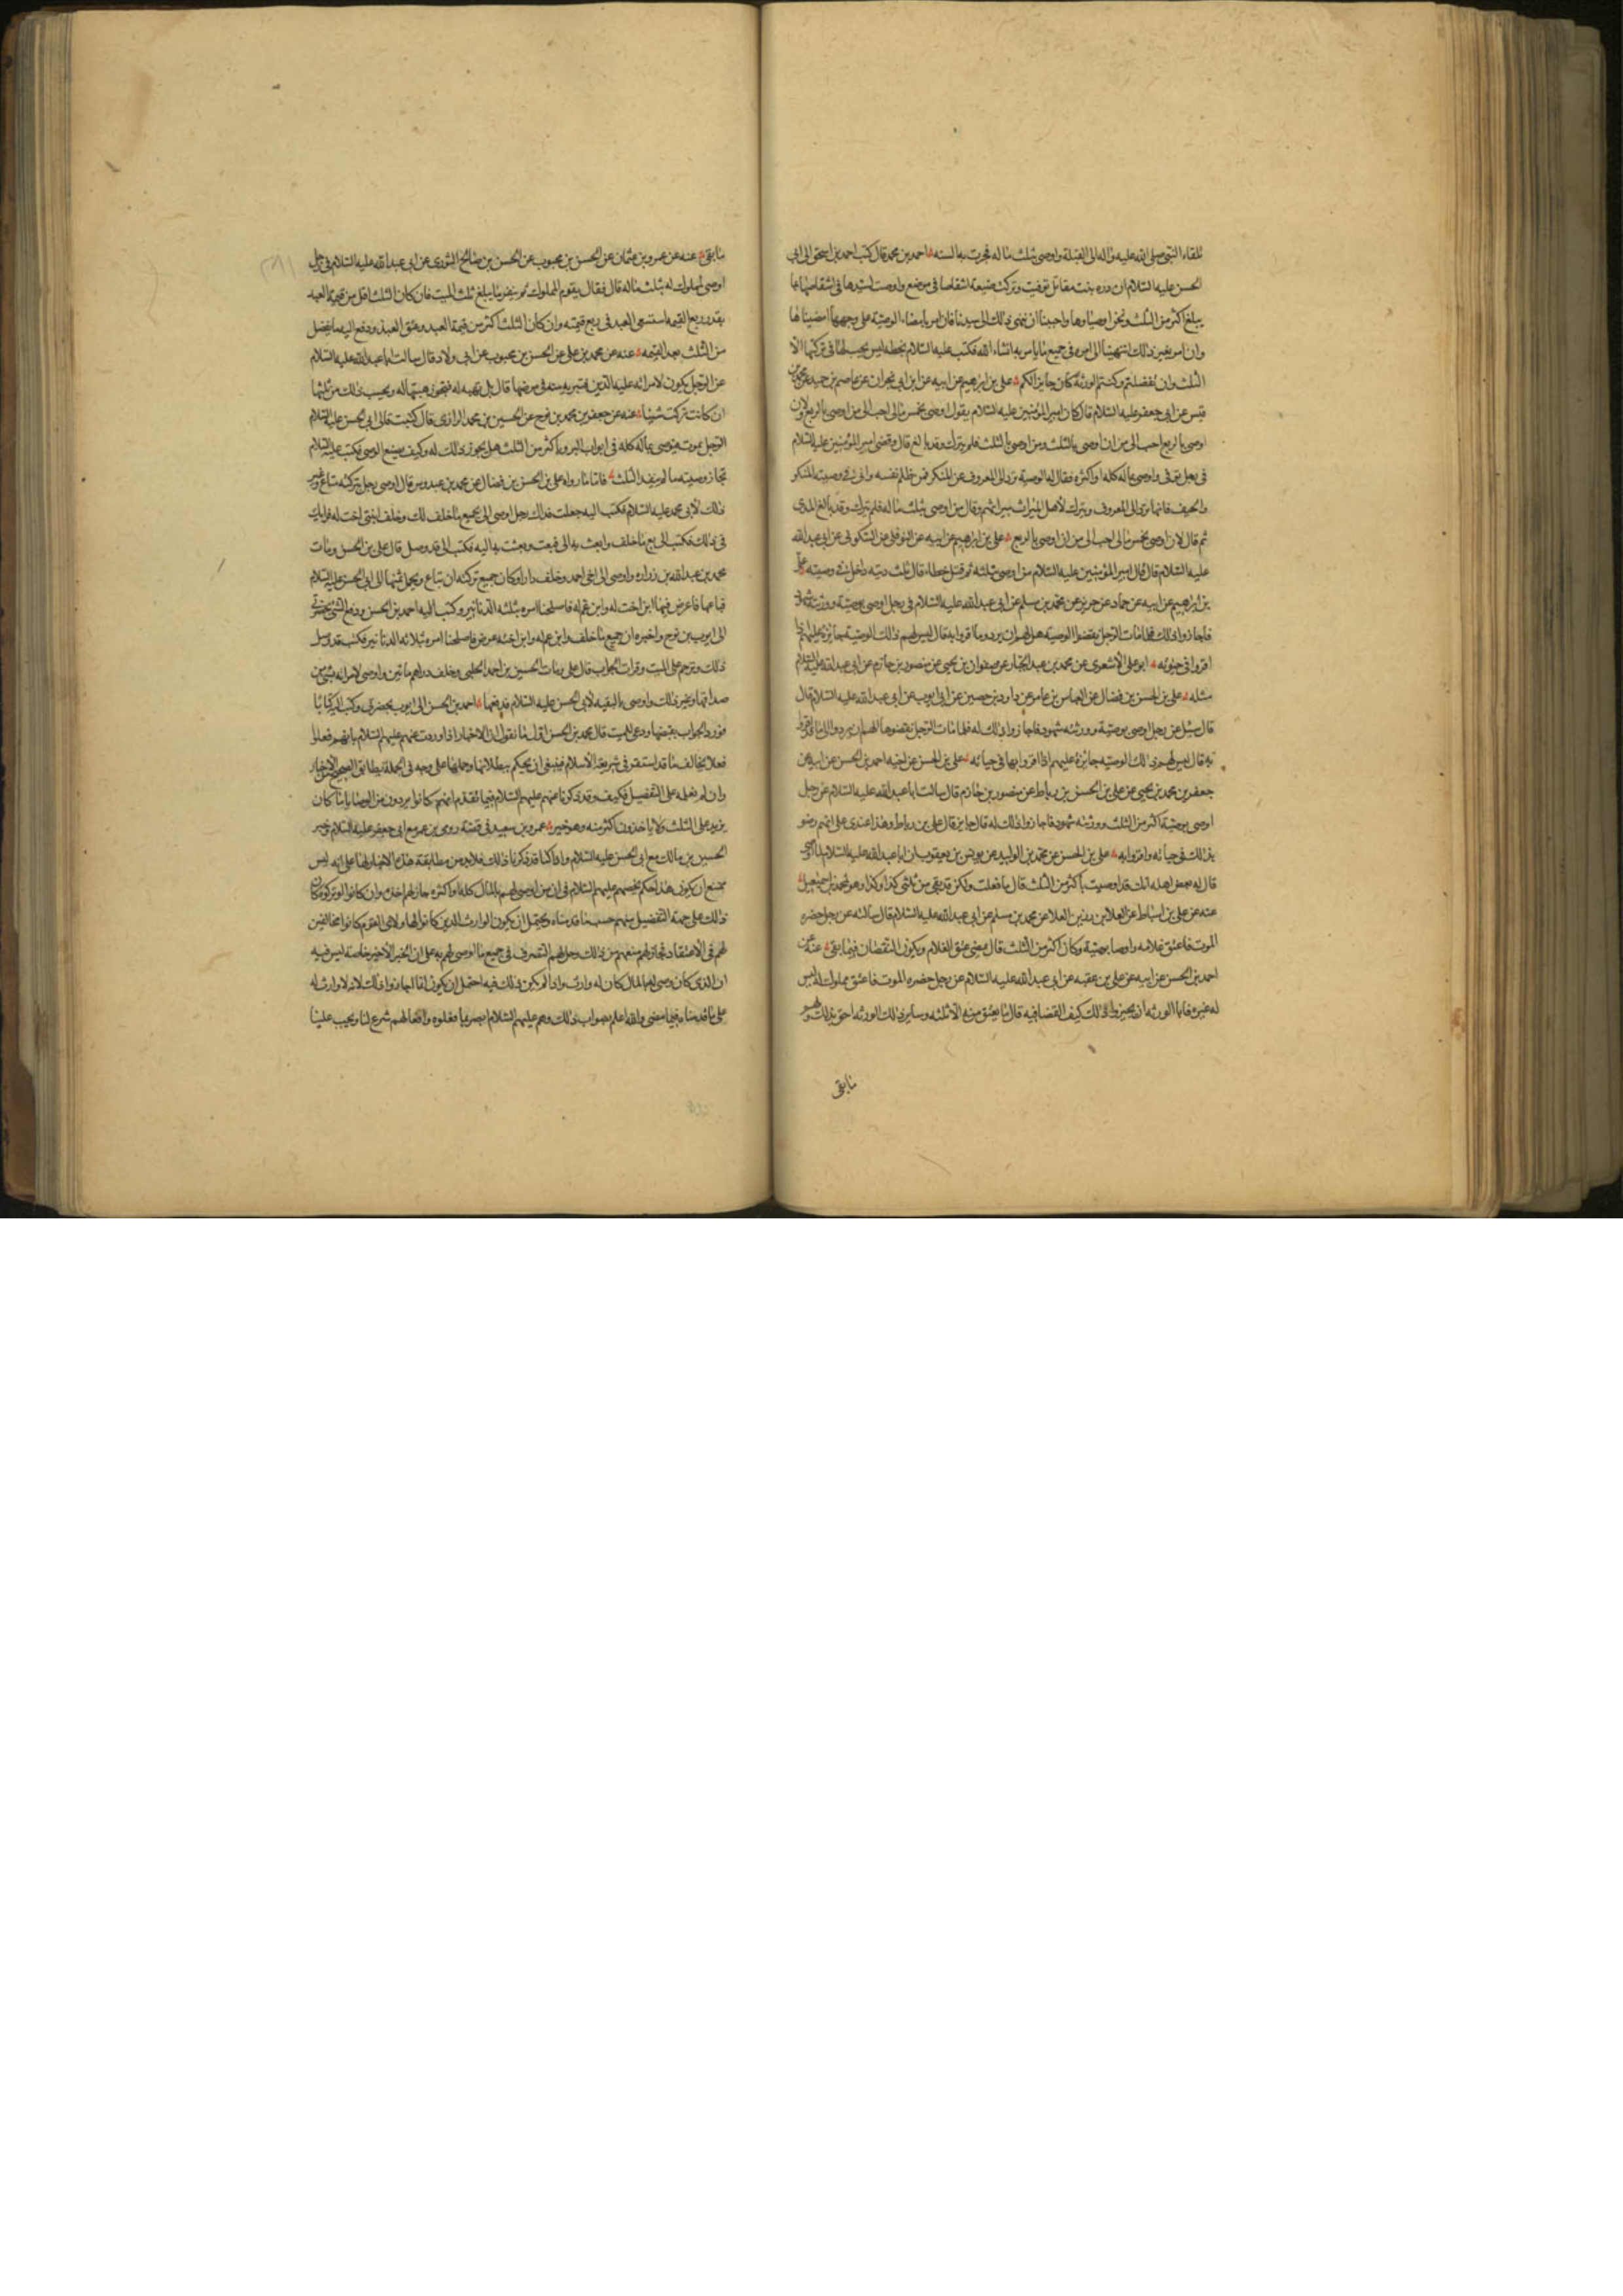 تلقاء النبي صلى الله عليه واله الى القبلة واوصى بثلث ماله فجرت به السنه احمد بن محمد قال كتب احمد بن اسحق الى ابى
الحسن عليه السلام ان دره بنت مقاتل توفيت وتركت ضيعة اشقاصا فى موضع واوصت لسيدها فى اشقاصها بما
يبلغ اكثر من الثلث ونحن اوصياوها واحببنا ان ننهى ذلك الى سيدنا فان امر بامضاء الوصية على وجهها امضيناها
وان امر بغير ذلك انتهينا الى امره فى جميع ما يامر به انشاء الله فكتب عليه السلام بخطه ليس يجب لها فى تركتها الا
الثلث وان تفضلتم وكنتم الورثة كان جايزا لكم على بن ابرهيم عن ابيه عن ابن ابى نجران عن عاصم بن حميد عن محمد بن
قيس عن ابى جعفر عليه السلام قال كان امير المؤمنين عليه السلام يقول لان اوصى بخمس مالى احب الى من ان اوصى بالربع ولان
اوصى بالربع احب الى من ان اوصى بالثلث ومن اوصى بالثلث فلم يترك وقد بالغ قال وقضى امير المؤمنين عليه السلام
فى رجل توفى واوصى بماله كله او اكثره فقال له الوصية ترد الى المعروف عن المنكر فمن ظلم نفسه واتى فى وصيته المنكر
والحيف فانها ترد الى المعروف ويترك لاهل الميراث ميراثهم وقال من اوصى بثلث ماله فلم يترك وقد بالغ المدى
ثم قال لان اوصى بخمس مالى احب الى من ان اوصى بالربع على بن ابرهيم عن ابيه عن النوفلى عن السكونى عن ابى عبد الله
عليه السلام قال قال امير المؤمنين عليه السلام من اوصى بثلثه ثم قتل خطاء قال ثلث ديته داخل فى وصيته على
بن ابرهيم عن ابيه عن حماد عن حريز عن محمد بن مسلم عن ابى عبد الله عليه السلام فى رجل اوصى بوصية وورثته شهود
فاجازوا ذلك فلما مات الرجل نقضوا الوصية هل لهم ان يردوا ما اقروا به فقال ليس لهم ذلك الوصية جايزة عليهم اذا
اقروا فى حيوته ابو على الاشعرى عن محمد بن عبد الجبار عن صفوان بن يحيى عن منصور بن حازم عن ابى عبد الله عليه السلام
مثله على بن الحسن بن فضال عن العباس بن عامر عن داود بن حصين عن ابى ايوب عن ابى عبد الله عليه السلام قال
قال سئل عن رجل اوصى بوصية وورثته شهود فاجازوا ذلك له فلما مات الرجل نقضوها الهم ان يردوا ما قد اقروا
به قال ليس لهم ذلك الوصية جايزة عليهم اذا اقروا بها فى حياته على بن الحسن عن اخيه احمد بن الحسن عن ابيه عن
جعفر بن محمد بن يحيى عن على بن الحسن بن رباط عن منصور بن حازم قال سالت ابا عبد الله عليه السلام عن رجل
اوصى بوصية اكثر من الثلث وورثته شهود فاجازوا ذلك له قال جايز قال على بن رباط وهذا عندى على انهم رضو
بذلك فى حياته واقروا به على بن الحسن عن محمد بن الوليد عن يونس بن يعقوب ان ابا عبد الله عليه السلام لما اوصى
قال له بعض اهله انك قد اوصيت باكثر من الثلث قال ما فعلت ولكن قد بقى من ثلثى كذا وكذا وهو لمحمد بن اسمعيل
عنه عن على بن اسباط عن العلا بن رزين العلا عن محمد بن مسلم عن ابى عبد الله عليه السلام قال سالته عن رجل حضره
الموت فاعتق غلامه واوصا بوصية وكان اكثر من الثلث قال يمضى عتق الغلام ويكون النقصان فيما بقى عنه عن
احمد بن الحسن عن ابيه عن على بن عقبه عن ابى عبد الله عليه السلام عن رجل حضره الموت فاعتق مملوكا له ليس
له غيره فابا الورثه ان يجيزوا ذلك كيف القضا فيه قال ما يعتق منه الا ثلثه وساير ذلك الورثه احق بذلك ولهم
ما بقى
ما بقى عنه عن عمرو بن عثمان عن الحسن بن محبوب عن الحسن بن صالح الثورى عن ابى عبد الله عليه السلام فى رجل
اوصى لمملوك له بثلث ماله قال فقال يقوم المملوك ثم ينظر ما يبلغ ثلث الميت فان كان الثلث اقل من قيمة العبد
بقدر ربع القيمه استسعى العبد فى ربع قيمته وان كان الثلث اكثر من قيمة العبد وعتق العبد ودفع اليه ما يفضل
من الثلث بعد القيمه عنه عن محمد بن على عن الحسن بن محبوب عن ابى ولاد قال سالت ابا عبد الله عليه السلام
عن الرجل يكون لامراته عليه الدين فتبريه منه فى مرضها قال بل تهبه له فتجوز هبتها له ويحسب ذلك من ثلثها
ان كانت تركت شيئا عنه عن جعفر بن محمد بن نوح عن الحسين بن محمد الرازى قال كتبت الى ابى الحسن عليه السلام
الرجل يموت فيوصى بماله كله فى ابواب البر وباكثر من الثلث هل يجوز ذلك له وكيف يصنع الوصى فكتب عليه السلام
تجاز وصيته ما لم يتعد الثلث فاما ما رواه على بن الحسن بن فضال عن محمد بن عبدوس قال اوصى رجل بتركته متاع وغير
ذلك لابى محمد عليه السلام فكتب اليه جعلت فداك رجل اوصى الى بجميع ما خلف لك وخلف ابنتى اخت له فرايك
فى ذلك فكتب الى بع ما خلف وابعث به الى فبعت وبعثت به اليه فكتب الى قد وصل قال على بن الحسن ومات
محمد بن عبد الله بن زراره واوصى الى اخى احمد وخلف دارا وكان جميع تركته ان تباع ويحمل ثمنها الى ابى الحسن عليه السلام
فباعها فاعرض فيها ابن اخت له وابن عم له فاصلحنا امره بثلثه الدنانير وكتب اليه احمد بن الحسن ودفع الشى بحضرتى
الى ايوب بن نوح واخبره ان جميع ما خلف وابن عم له وابن اخته عرض فاصلحنا امره بثلاثه الدنانير فكتب قد وصل
ذلك وترحم على الميت وقرات الجواب قال على ومات الحسين بن احمد الحلبى وخلف دراهم ماتين واوصى لامراته بشى من
صداقها وغير ذلك واوصى بالبقيه لابى الحسن عليه السلام فدفعها احمد بن الحسن الى ايوب بحضرتى وكتب اليه كتابا
فورد الجواب بقبضها ودعى للميت قال محمد بن الحسن اول ما نقول ان الاخبار اذا وردت عنهم عليهم السلام بانهم فعلوا
فعلا يخالف ما قد استقر فى شريعة الاسلام فينبغى ان يحكم ببطلانها وحملها على وجه فى الجملة يطابق الصحيح من الاخبار
وان لم نعلمه على التفصيل فكيف وقد ذكرنا عنهم عليهم السلام فيما تقدم انهم كانوا يردون من الوصايا ما كان
يزيد على الثلث ولا ياخذون اكثر منه وهو خبر عمرو بن سعيد فى قصة رومى بن عمر مع ابى جعفر عليه السلام وخبر
الحسين بن مالك مع ابى الحسن عليه السلام واذا كنا قد ذكرنا ذلك فلابد من مطابقة هذه الاخبار لها على انه ليس
ممتنع ان يكون هذا حكم يخصهم عليهم السلام فى ان من اوصى لهم بالمال كله او اكثره جاز لهم اخذه وان كانوا لو تركوه كان
ذلك على جهة التفضيل منهم حسب ما قدمناه ويحتمل ان يكون الوارث الذين كانوا لهاولاى القوم كانوا مخالفين
لهم فى الاعتقاد فجاز لهم منعهم من ذلك وحل لهم التصرف فى جميع ما اوصى لهم به على ان الخبر الاخير خاصة ليس فيه
ان الذى كان اوصى لهم بالمال كان له وارث واذا لم يكن ذلك فيه احتمل ان يكون انما اجازوا ذلك لانه لا وارث له
على ما قدمناه فيما مضى والله اعلم بصواب ذلك وهم عليهم السلام ابصر بما فعلوه وافعالهم شرع لنا ويجب علينا